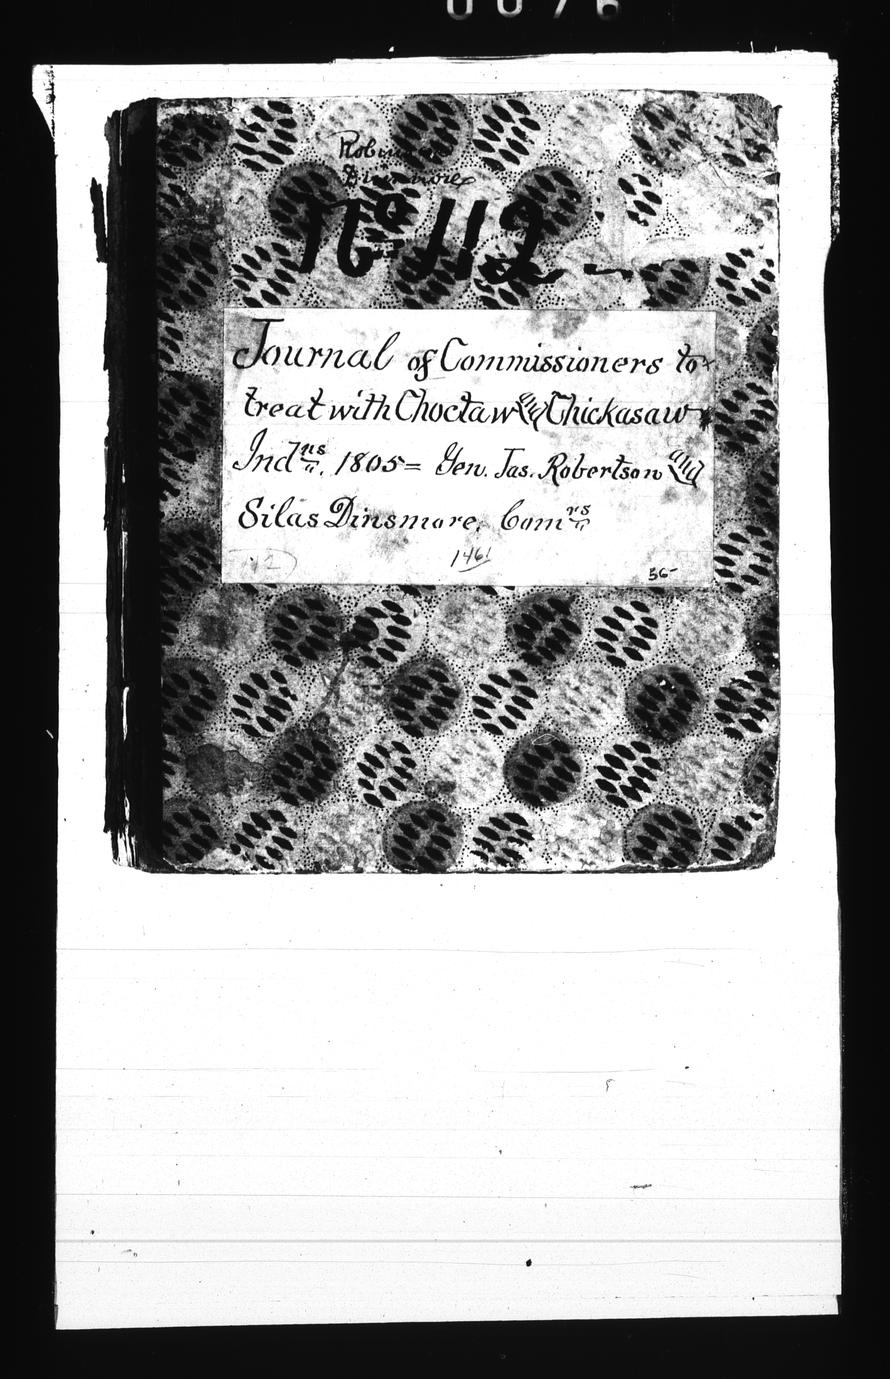 0076
Dinsmore
No 112
Journal of Commissioners to
treat with Choctaw and Chickasaw
Indns. 1805= Gen. Jas. Robertson and
Silas Dinsmore, Comrs
1461
56-